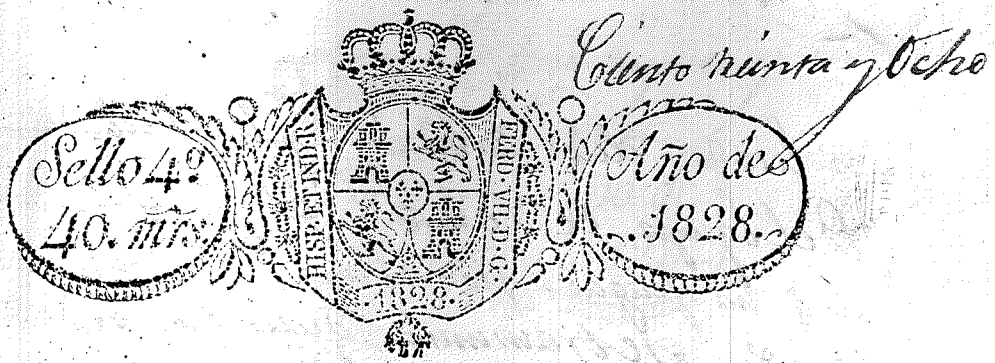 Ciento treinta y Ocho
Sello 4º
40. mrs.
HISP. ET IND. R.
FERD. VII. D. G.
.1828.
Año de
.1828.